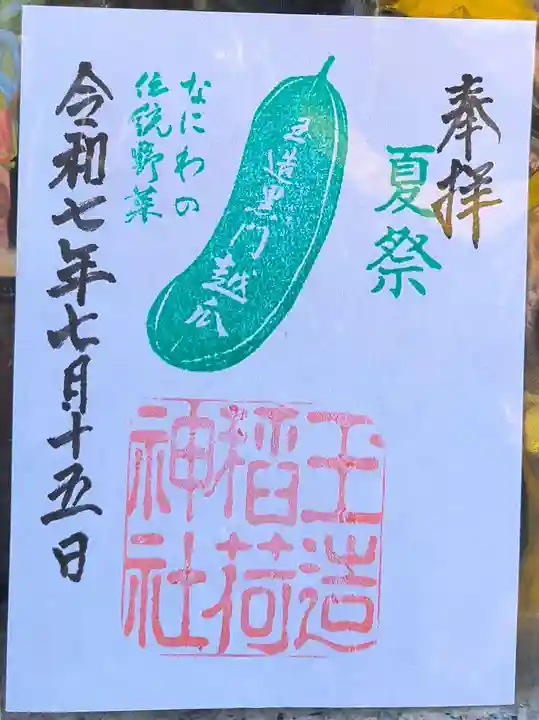 奉拝
夏祭
玉造黒門越瓜
なにわの
伝統野菜
令和七年七月十五日
玉造
稲荷
神社